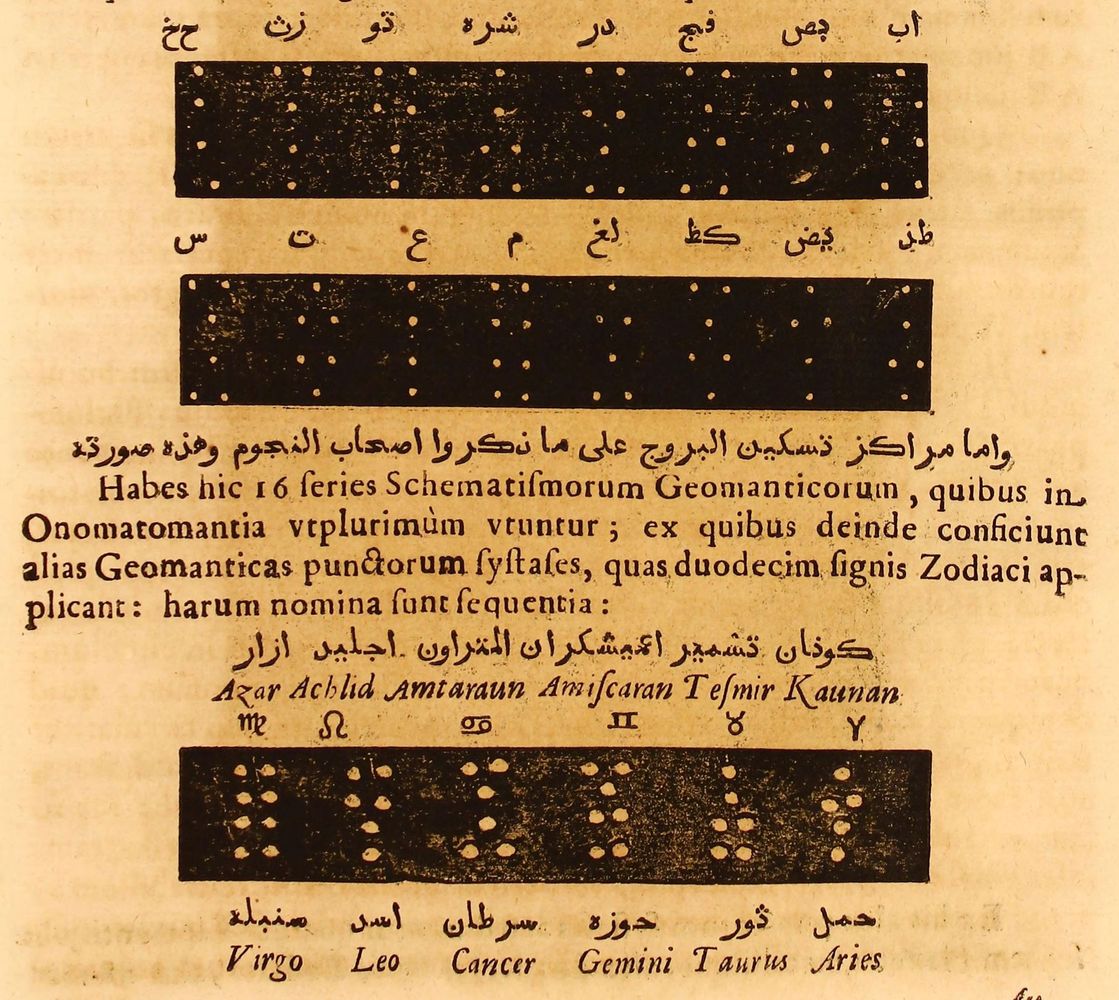 اب يص فج در شره ثو زث حخ
طذ يض كظ لغ م ع ت س
واما مراكز تسكين البروج على ما ذكروا اصحاب النجوم وهذه صورته
Habes hic 16 ſeries Schematiſmorum Geomanticorum, quibus in
Onomatomantia vtplurimùm vtuntur; ex quibus deinde conficiunt
alias Geomanticas punctorum ſyſtaſes, quas duodecim ſignis Zodiaci ap-
plicant: harum nomina ſunt ſequentia:
كوذان تشمير اميشكران المتراون اجليد ازار
Azar Achlid Amtaraun Amiſcaran Teſmir Kaunan
♍ ♌ ♋ ♊ ♉ ♈
حمل ثور جوزه سرطان اسد سنبله
Virgo Leo Cancer Gemini Taurus Aries